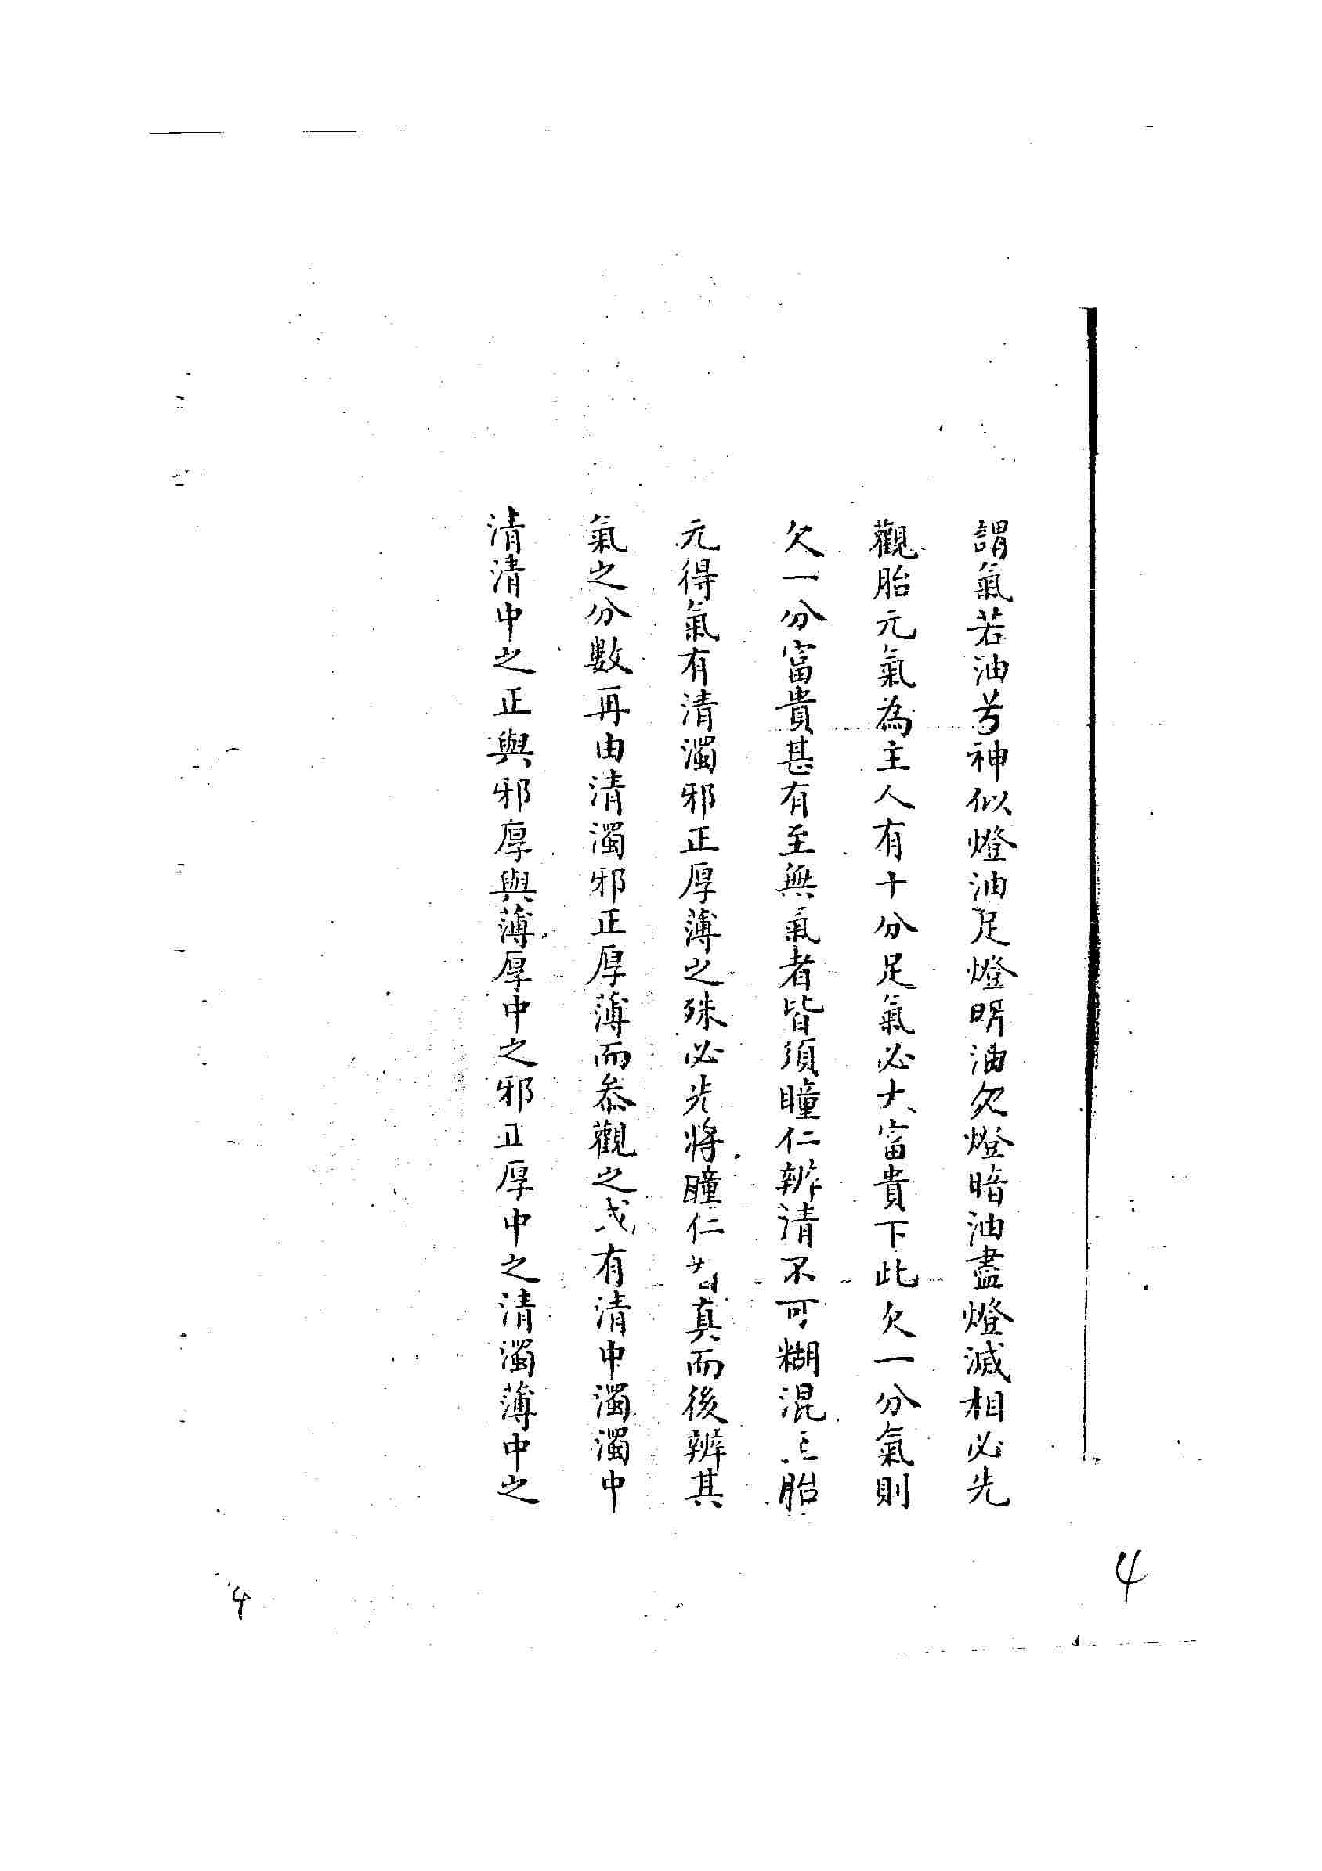 謂氣若油兮神似燈油足燈明油欠燈暗油盡燈滅相必先
觀胎元氣為主人有十分足氣必大富貴下此欠一分氣則
欠一分富貴甚有至無氣者皆須瞳仁辨清不可糊混胎
元得氣有清濁邪正厚薄之殊必先將瞳仁真而後辨其
氣之分數再由清濁邪正厚薄而叅觀之或有清中濁濁中
清清中之正與邪厚與薄厚中之邪正厚中之清濁薄中之
4
4